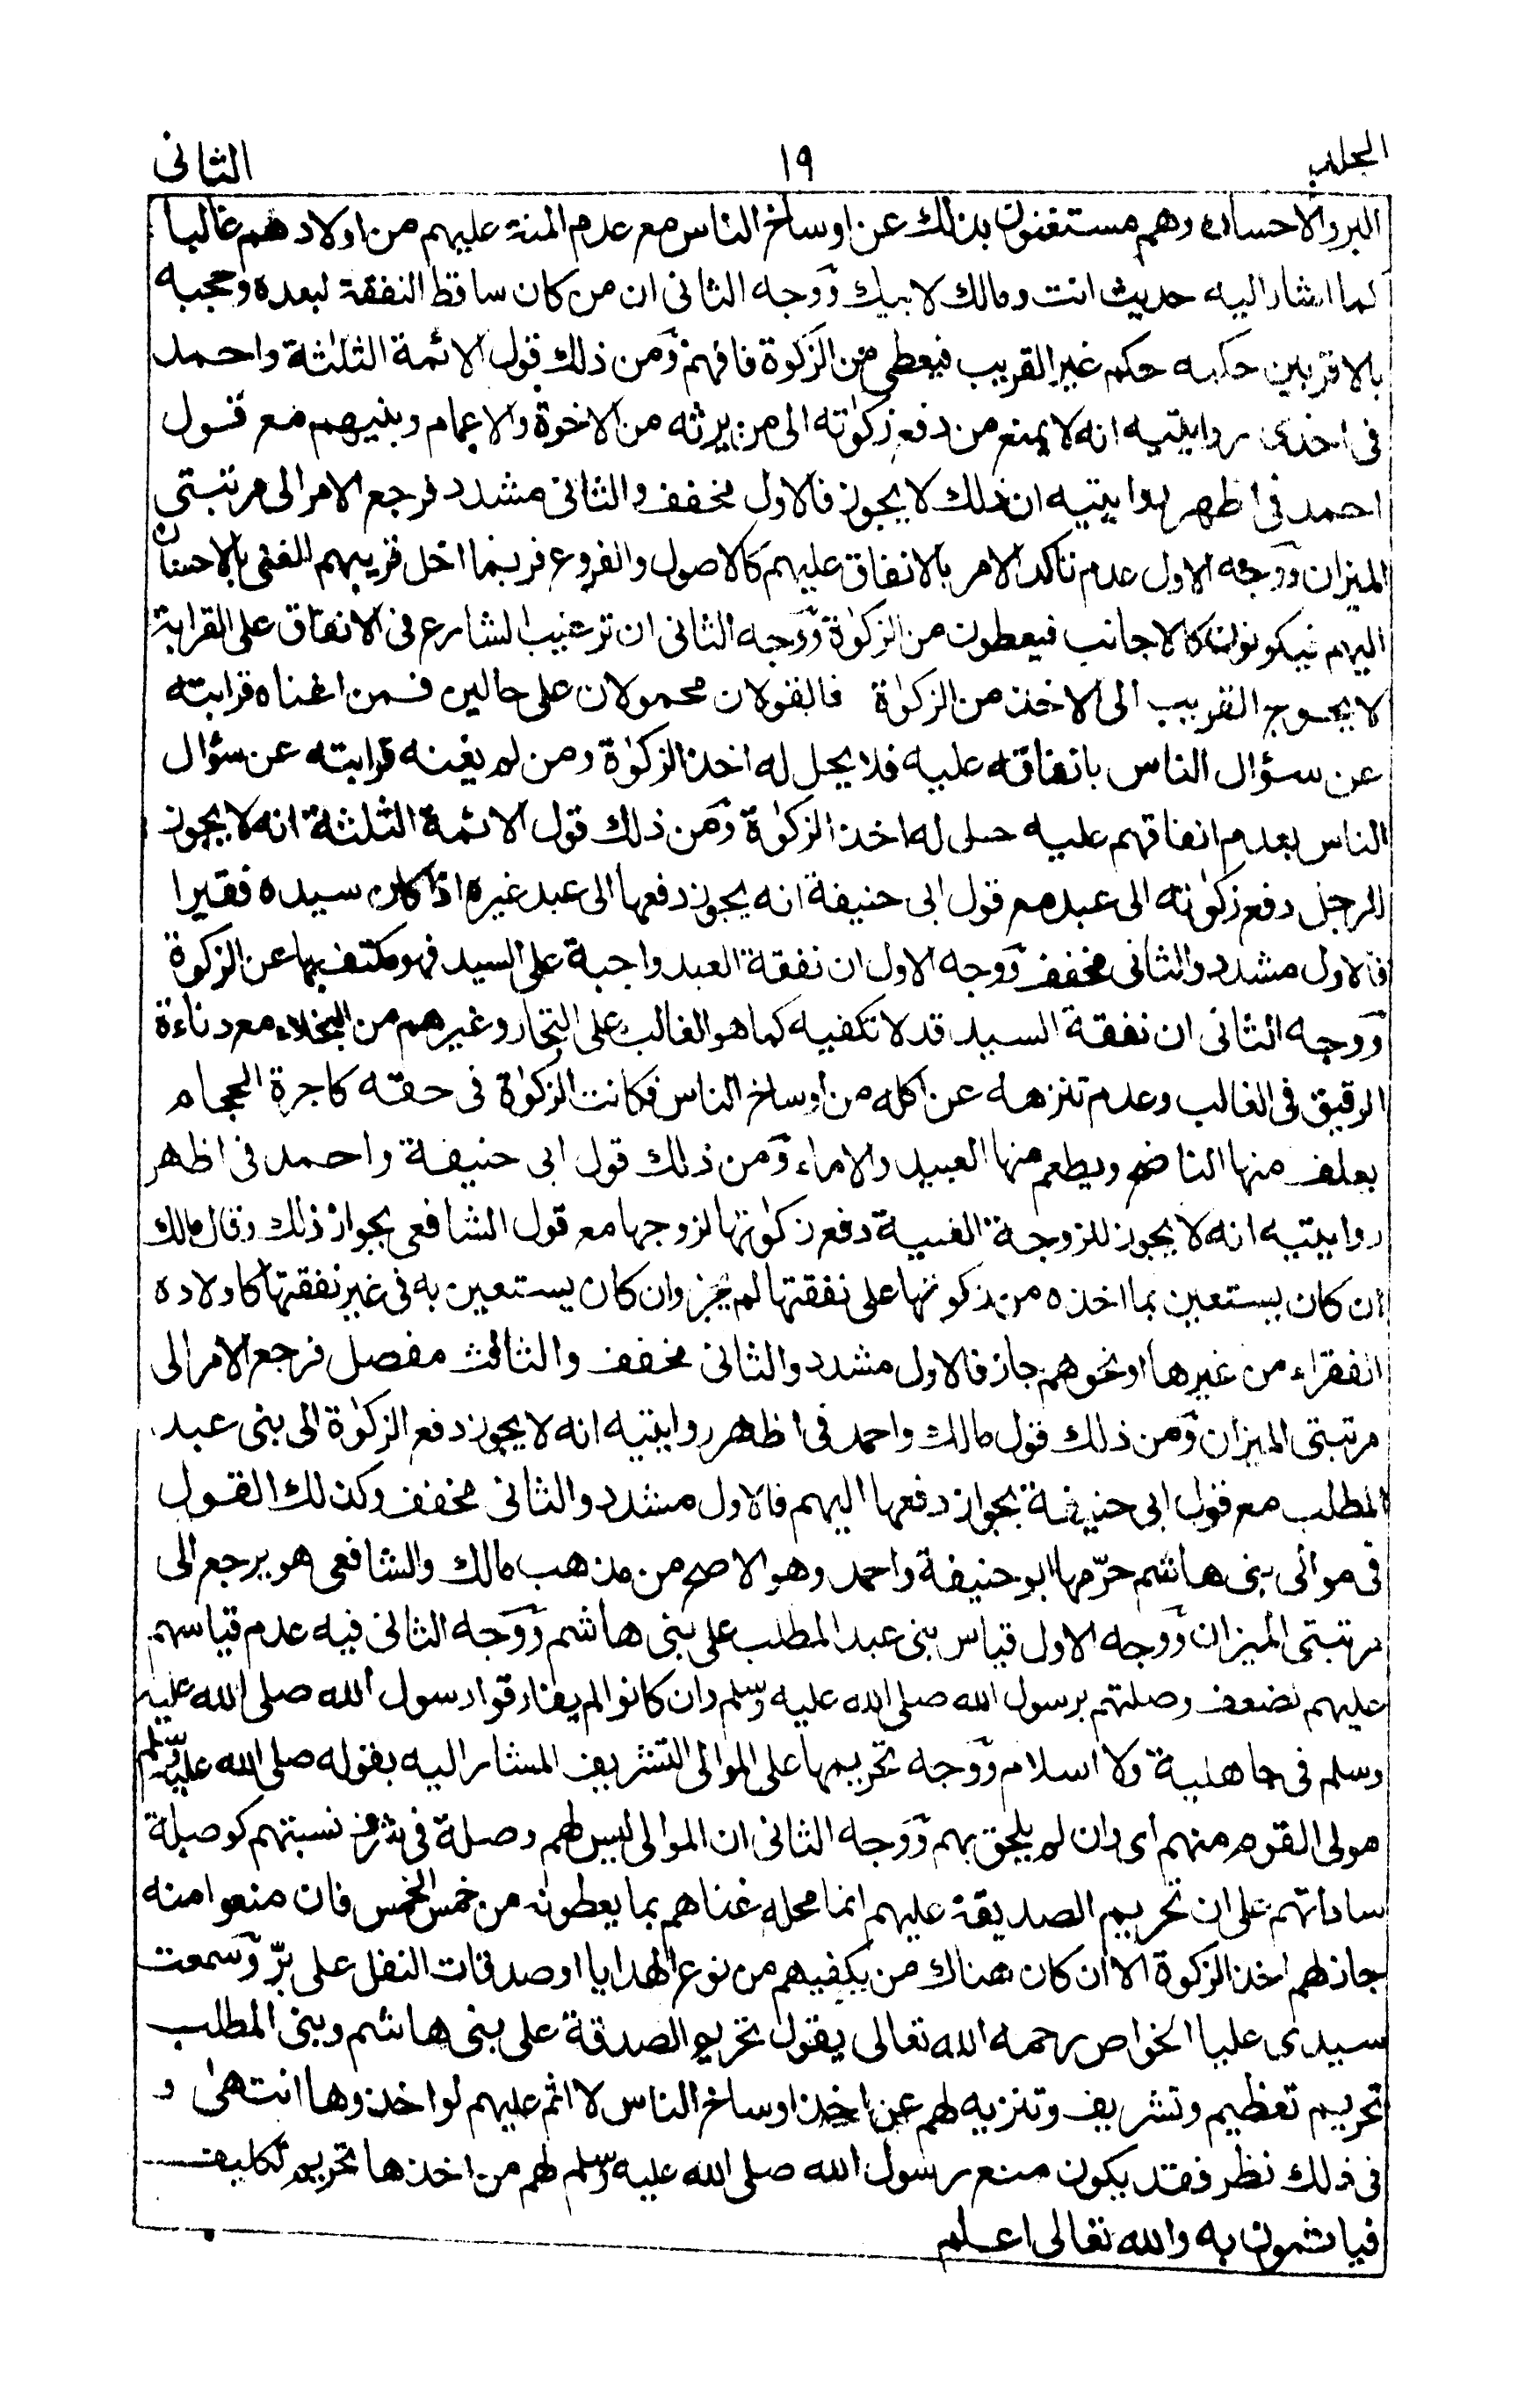 الجلد ١٩ الثانى
البر والاحسان وهم مستغنون بذلك عن اوساخ الناس مع عدم المنة عليهم من اولادهم غالبا
كما اشار اليه حديث انت ومالك لابيك ووجه الثانى ان من كان ساقط النفقة لبعده وحجبه
بالاقربين حكمه حكم غير القريب فيعطى من الزكوة فافهم ومن ذلك قول الائمة الثلثة واحمد
فى احدى روايتيه انه لا يمنع من دفع زكوته الى من يرثه من الاخوة والاعمام وبنيهم مع قول
احمد فى اظهر روايتيه ان ذلك لا يجوز فالاول مخفف والثانى مشدد فرجع الامر الى مرتبتى
الميزان ووجه الاول عدم تاكد الامر بالانفاق عليهم كالاصول والفروع فربما اخل قريبهم الغنى بالاحسان
اليهم فيكونون كالاجانب فيعطون من الزكوة ووجه الثانى ان ترغيب الشارع فى الانفاق على القرابة
لا يحوج القريب الى الاخذ من الزكوة فالقولان محمولان على حالين فمن اغناه قرابته
عن سؤال الناس بانفاقه عليه فلا يحل له اخذ الزكوة ومن لم يغنه قرابته عن سؤال
الناس بعدم انفاقهم عليه حل له اخذ الزكوة ومن ذلك قول الائمة الثلثة انه لا يجوز
للرجل دفع زكوته الى عبد مع قول ابى حنيفة انه يجوز دفعها الى عبد غيره اذا كان سيده فقيرا
فالاول مشدد والثانى مخفف ووجه الاول ان نفقة العبد واجبة على السيد فهو مكتف بها عن الزكوة
ووجه الثانى ان نفقة السيد قد لا تكفيه كما هو الغالب على التجار وغيرهم من البخلاء مع دناءة
الرقيق فى الغالب وعدم تنزهه عن اكله من اوساخ الناس فكانت الزكوة فى حقه كاجرة الحجام
يعلف منها الناضح ويطعم منها العبيد والاماء ومن ذلك قول ابى حنيفة واحمد فى اظهر
روايتيه انه لا يجوز للزوجة الغنية دفع زكوتها لزوجها مع قول الشافعى بجواز ذلك وقال مالك
ان كان يستعين بما اخذه من زكوتها على نفقتها لم يجز وان كان يستعين به فى غير نفقتها كاولاده
الفقراء من غيرها او نحوهم جاز فالاول مشدد والثانى مخفف والثالث مفصل فرجع الامر الى
مرتبتى الميزان ومن ذلك قول مالك واحمد فى اظهر روايتيه انه لا يجوز دفع الزكوة الى بنى عبد
المطلب مع قول ابى حنيفة بجواز دفعها اليهم فالاول مشدد والثانى مخفف وكذلك القول
فى موالى بنى هاشم حرّمها ابو حنيفة واحمد وهو الاصح من مذهب مالك والشافعى هو يرجع الى
مرتبتى الميزان ووجه الاول قياس بنى عبد المطلب على بنى هاشم ووجه الثانى فيه عدم قياسهم
عليهم لضعف وصلتهم برسول الله صلى الله عليه وسلم وان كانوا لم يفارقوا رسول الله صلى الله عليه
وسلم فى جاهلية ولا اسلام ووجه تحريمها على الموالى التشريف المشار اليه بقوله صلى الله عليه وسلم
مولى القوم منهم اى وان لم يلحق بهم ووجه الثانى ان الموالى ليس لهم وصلة فى شرف نسبتهم كوصلة
ساداتهم على ان تحريم الصديقة عليهم انما محله غناهم بما يعطونه من خمس الخمس فان منعوا منه
جاز لهم اخذ الزكوة الا ان كان هناك من يكفيهم من نوع الهدايا او صدقات النفل على برّ وسمعت
سيدى عليا الخواص رحمه الله تعالى يقول تحريم الصدقة على بنى هاشم وبنى المطلب
تحريم تعظيم وتشريف وتنزيه لهم عن اخذ اوساخ الناس لا اثم عليهم لو اخذوها انتهى و
فى ذلك نظر فقد يكون منع رسول الله صلى الله عليه وسلم لهم من اخذها تحريم تكليف
فياثمون به والله تعالى اعلم